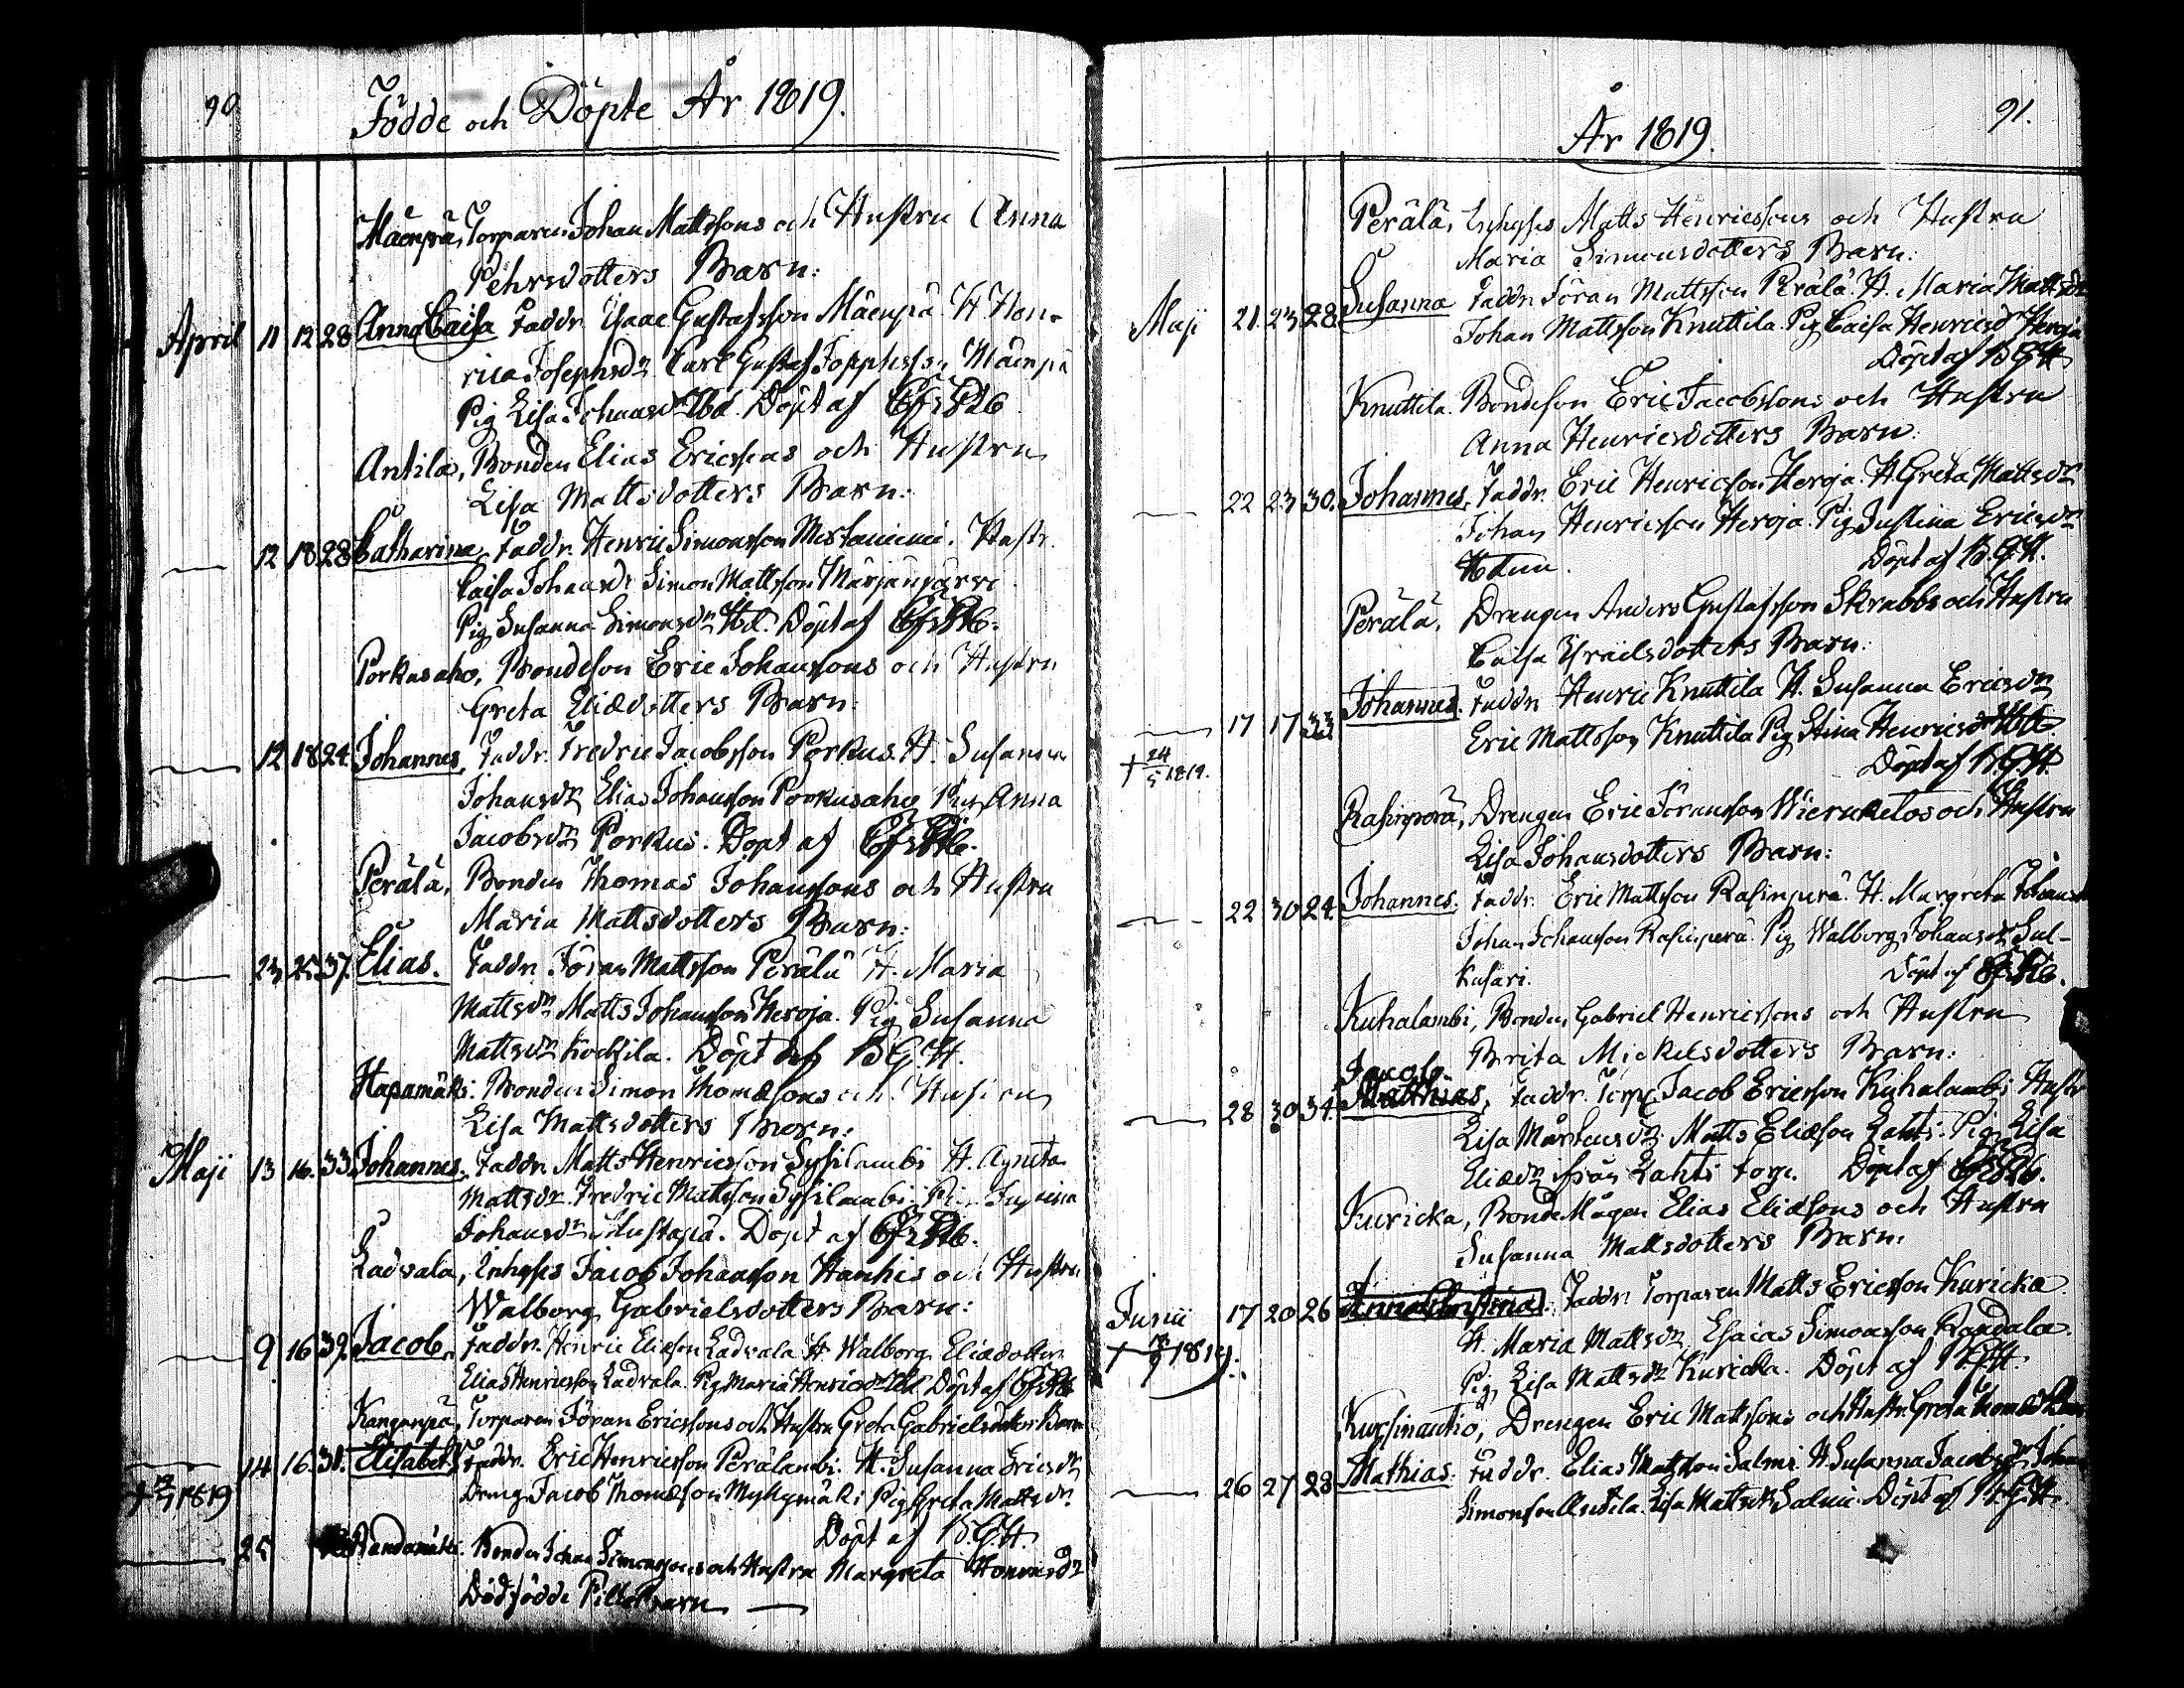 90
Födde och Döpte År 1819.
Mäenpä, Torparen Johan Mattssons och Hustru Anna
Pehrsdotters Barn:
April 11 12 28 Anna Caisa Faddr. Isaac Gustafsson Mäenpä. H. Hen-
rica Josephsdr Carl Gustaf Mäenpä
Pig Lisa Döpt af
Antila, Bonden Elias Ericssons och Hustru
Lisa Mattsdotters Barn:
12 18 28 Catharina, Faddr. Henric Simonsson Hustr.
Caisa Johansdr Simon Mattsson Marjanjärvi
Pig Susanna Simonsdr Döpt af
Porkusaho, Bondeson Eric Johanssons och Hustru
Greta Eliædotters Barn:
12 18 24 Johannes, Faddr. Fredric Jacobsson Porkus. H. Susanna
Johansdr, Elias Johansson Porkusaho Pig Anna
Jacobsdr Porkus. Döpt af
Perälä, Bonden Thomas Johanssons och Hustru
Maria Mattsdotters Barn:
23 25 37. Elias. Faddr. Jöran Mattsson Perälä H. Maria
Mattsdr Matts Johansson Heroja. Pig Susanna
Mattsdr Döpt af B.G.H.
Hapamäki. Bonden Simon Thomæsons och Hustru
Lisa Mattsdotters Barn:
Maji 13 16. 33 Johannes. Faddr. Matts Henricsson Sysilambi H. Agneta
Mattsdr. Fredric Mattsson Sysilambi. Pig
Johansdr Döpt af
Ladvala, Inhyses Jacob Johansson Hanhis och Hustru
Walborg Gabrielsdotters Barn:
9. 16 39. Jacob, Faddr. Henric Eliæson Ladvala H. Walborg Eliædotter
Elias Henricsson Ladvala. Pig Maria Henricsdr Döpt af
Kangaspä, Torparen Jöran Ericssons och Hustru Greta Gabrielsdotters Barn
14 16. 31. Elisabeth Faddr. Eric Henricsson Perälambi. H. Susanna Ericsdr
† 1819 Dreng Jacob Thomæson Myllymäki Pig Greta Mattsdr.
Döpt af B.G.H.
25 Bonden Johan Simonssons och Hustru Margreta Henricsdr
Dödfödde Pillebarn
91.
År 1819.
Perälä, Inhyses Matts Henricssons och Hustru
Maria Simonsdotters Barn:
Maji 21. 23 28. Susanna Faddr. Jöran Mattsson Perälä. H. Maria Mattsdr
Johan Mattsson Knuttila. Pig Caisa Henricsd Heroja
Döpt af B.G.H.
Knuttila. Bondeson Eric Jacobssons och Hustru
Anna Henricsdotters Barn:
22 23 30. Johannes, Faddr. Eric Henricsson Heroja. H. Greta Mattsdr
Johan Henricsson Heroja. Pig Justina Ericsdr
Döpt af B.G.H.
Perälä, Drengen Anders Gustafsson Skrabb och Hustru
Caisa Israelsdotters Barn:
17 17 33 Johannes. Faddr. Henric Knuttila H. Susanna Ericsdr
† 24/5 1819. Eric Mattsson Knuttila Pig Stina Henricsdr
Döpt af B.G.H.
Rasinperä, Drengen Eric Jöransson Wieruketos och Hustru
Lisa Johansdotters Barn:
22 30 24. Johannes. Faddr. Eric Mattsson Rasinperä. H. Margreta Johansdr
Johan Johansson Rasinperä. Pig Walborg Johansdr Sul-
kusari. Döpt af
Kuhalambi, Bonden Gabriel Henricssons och Hustru
Brita Mickelsdotters Barn:
Jacob.
28 30 34. Matthias, Faddr. Torp. Jacob Ericsson Kuhalambi Hustr
Lisa Mårtensdr. Matts Eliæson Lahti. Pig Lisa
Eliædr ifrån Lahti torp. Döpt af
Kuricka, BondeMågen Elias Eliæsons och Hustru
Susanna Mattsdotters Barn:
Junii 17 20 26 Anna Christina. Faddr. Torparen Matts Ericsson Kuricka.
† 1819. H. Maria Mattsdr, Esaias Simonsson Randala.
Pig Lisa Mattsdr Kuricka. Döpt af B.G.H.
Drengen Eric Mattssons och Hustr. Greta
26 27 28 Mathias. Faddr. Elias Mattsson Salmi. H. Susanna Jacobsdr Johan
Simonsson Lisa Mattsdr Salmi. Döpt af B.G.H.